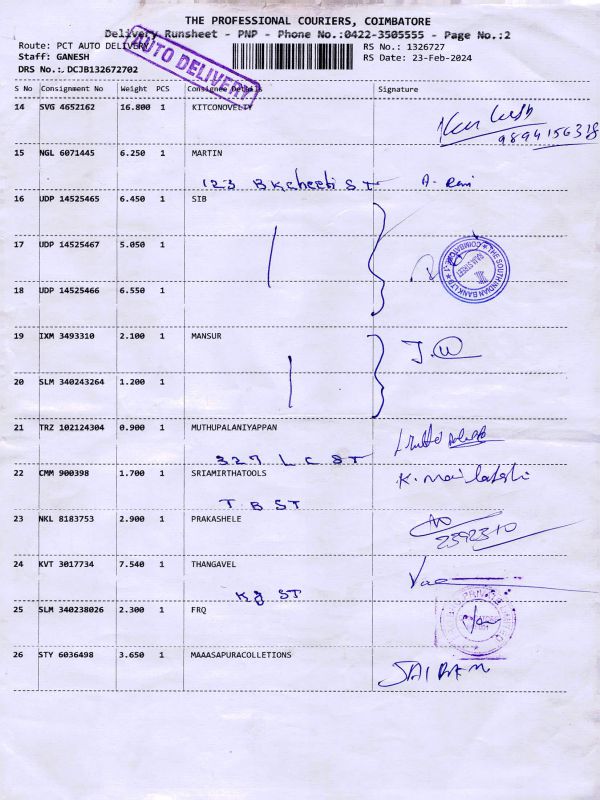 THE PROFESSIONAL COURIERS, COIMBATORE
Delivery Runsheet - PNP - Phone No.:0422-3505555 - Page No.:2
Route: PCT AUTO DELIVERY
RS No.: 1326727
Staff: GANESH
RS Date: 23-Feb-2024
DRS No.:.DCJB132672702
AUTO DELIVERY
S No Consignment No Weight PCS Consignee Details Signature
14 SVG 4652162 16.800 1 KITCONOVELTY
9894156338
15 NGL 6071445 6.250 1 MARTIN
123 ST A. Rani
16 UDP 14525465 6.450 1 SIB
17 UDP 14525467 5.050 1
THE SOUTH INDIAN BANK LTD COIMBATORE-1
18 UDP 14525466 6.550 1
19 IXM 3493310 2.100 1 MANSUR
20 SLM 340243264 1.200 1
21 TRZ 102124304 0.900 1 MUTHUPALANIYAPPAN
327 L C ST
22 CMM 900398 1.700 1 SRIAMIRTHATOOLS
T B ST
23 NKL 8183753 2.900 1 PRAKASHELE
2392310
24 KVT 3017734 7.540 1 THANGAVEL
KG ST
25 SLM 340238026 2.300 1 FRQ
26 STY 6036498 3.650 1 MAAASAPURACOLLETIONS
SAI RAM